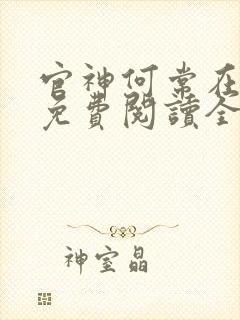 官神何常在
免費閱讀全
神室晶